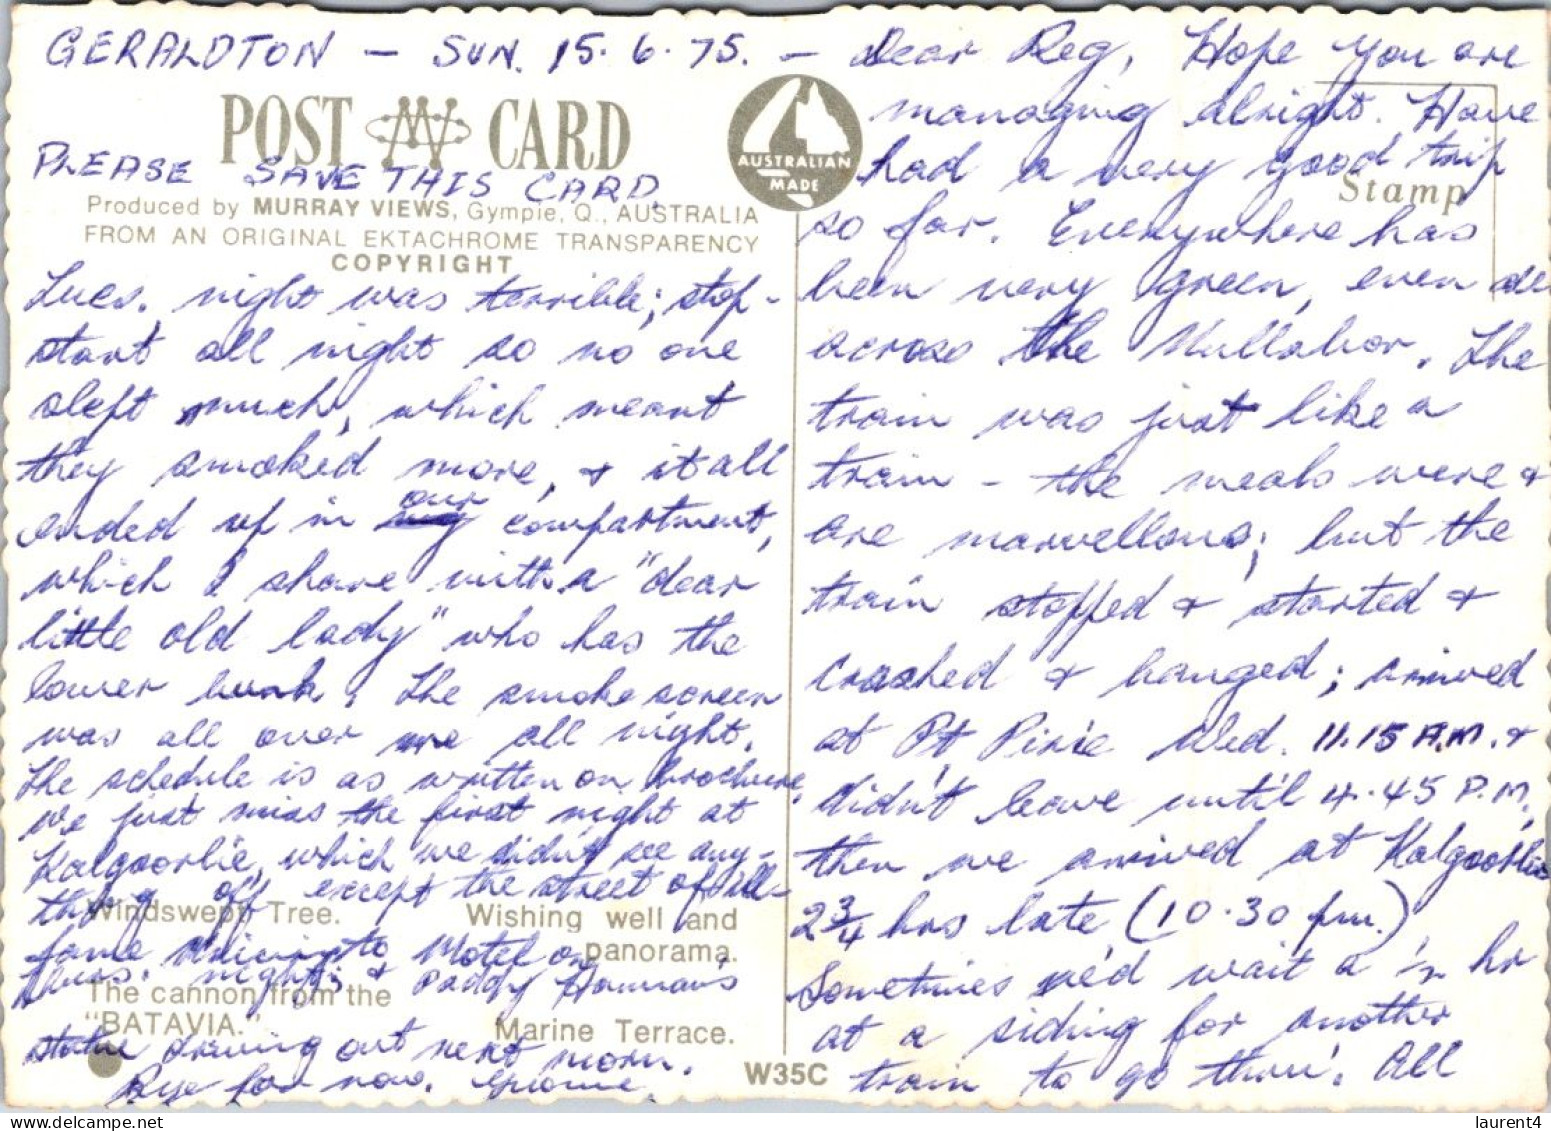 GERALDTON — SUN. 15.6.75. —
Dear Reg, Hope you are
managing alright. Have
had a very good trip
so far. Everywhere has
been very green, even
across the Nullabor. The
train was just like a
train — the meals were &
are marvellous; but the
train stopped & started &
crashed & banged; arrived
at Pt Pirie Wed. 11.15 A.M. &
didn't leave until 4.45 P.M,
then we arrived at Kalgoorlie
2 3/4 hrs late (10.30 pm.)
Sometimes we'd wait a ½ hr
at a siding for another
train to go thru'. All
POST CARD
AUSTRALIAN
MADE
Stamp
PLEASE SAVE THIS CARD.
Produced by MURRAY VIEWS, Gympie, Q., AUSTRALIA
FROM AN ORIGINAL EKTACHROME TRANSPARENCY
COPYRIGHT
Tues. night was terrible; stop-
start all night so no one
slept much, which meant
they smoked more, & it all
ended up in our compartment,
which I share with a "dear
little old lady" who has the
lower bunk. The smoke screen
was all over me all night.
The schedule is as written on brochure,
we just miss the first night at
Kalgoorlie, which we didn't see any-
thing off except the street of ill-
fame driving to Motel on
Thurs. night, & Paddy Hannan's
statue driving out next morn.
Bye for now.
Windswept Tree.
Wishing well and
panorama.
The cannon from the
"BATAVIA."
Marine Terrace.
W35C
laurent4